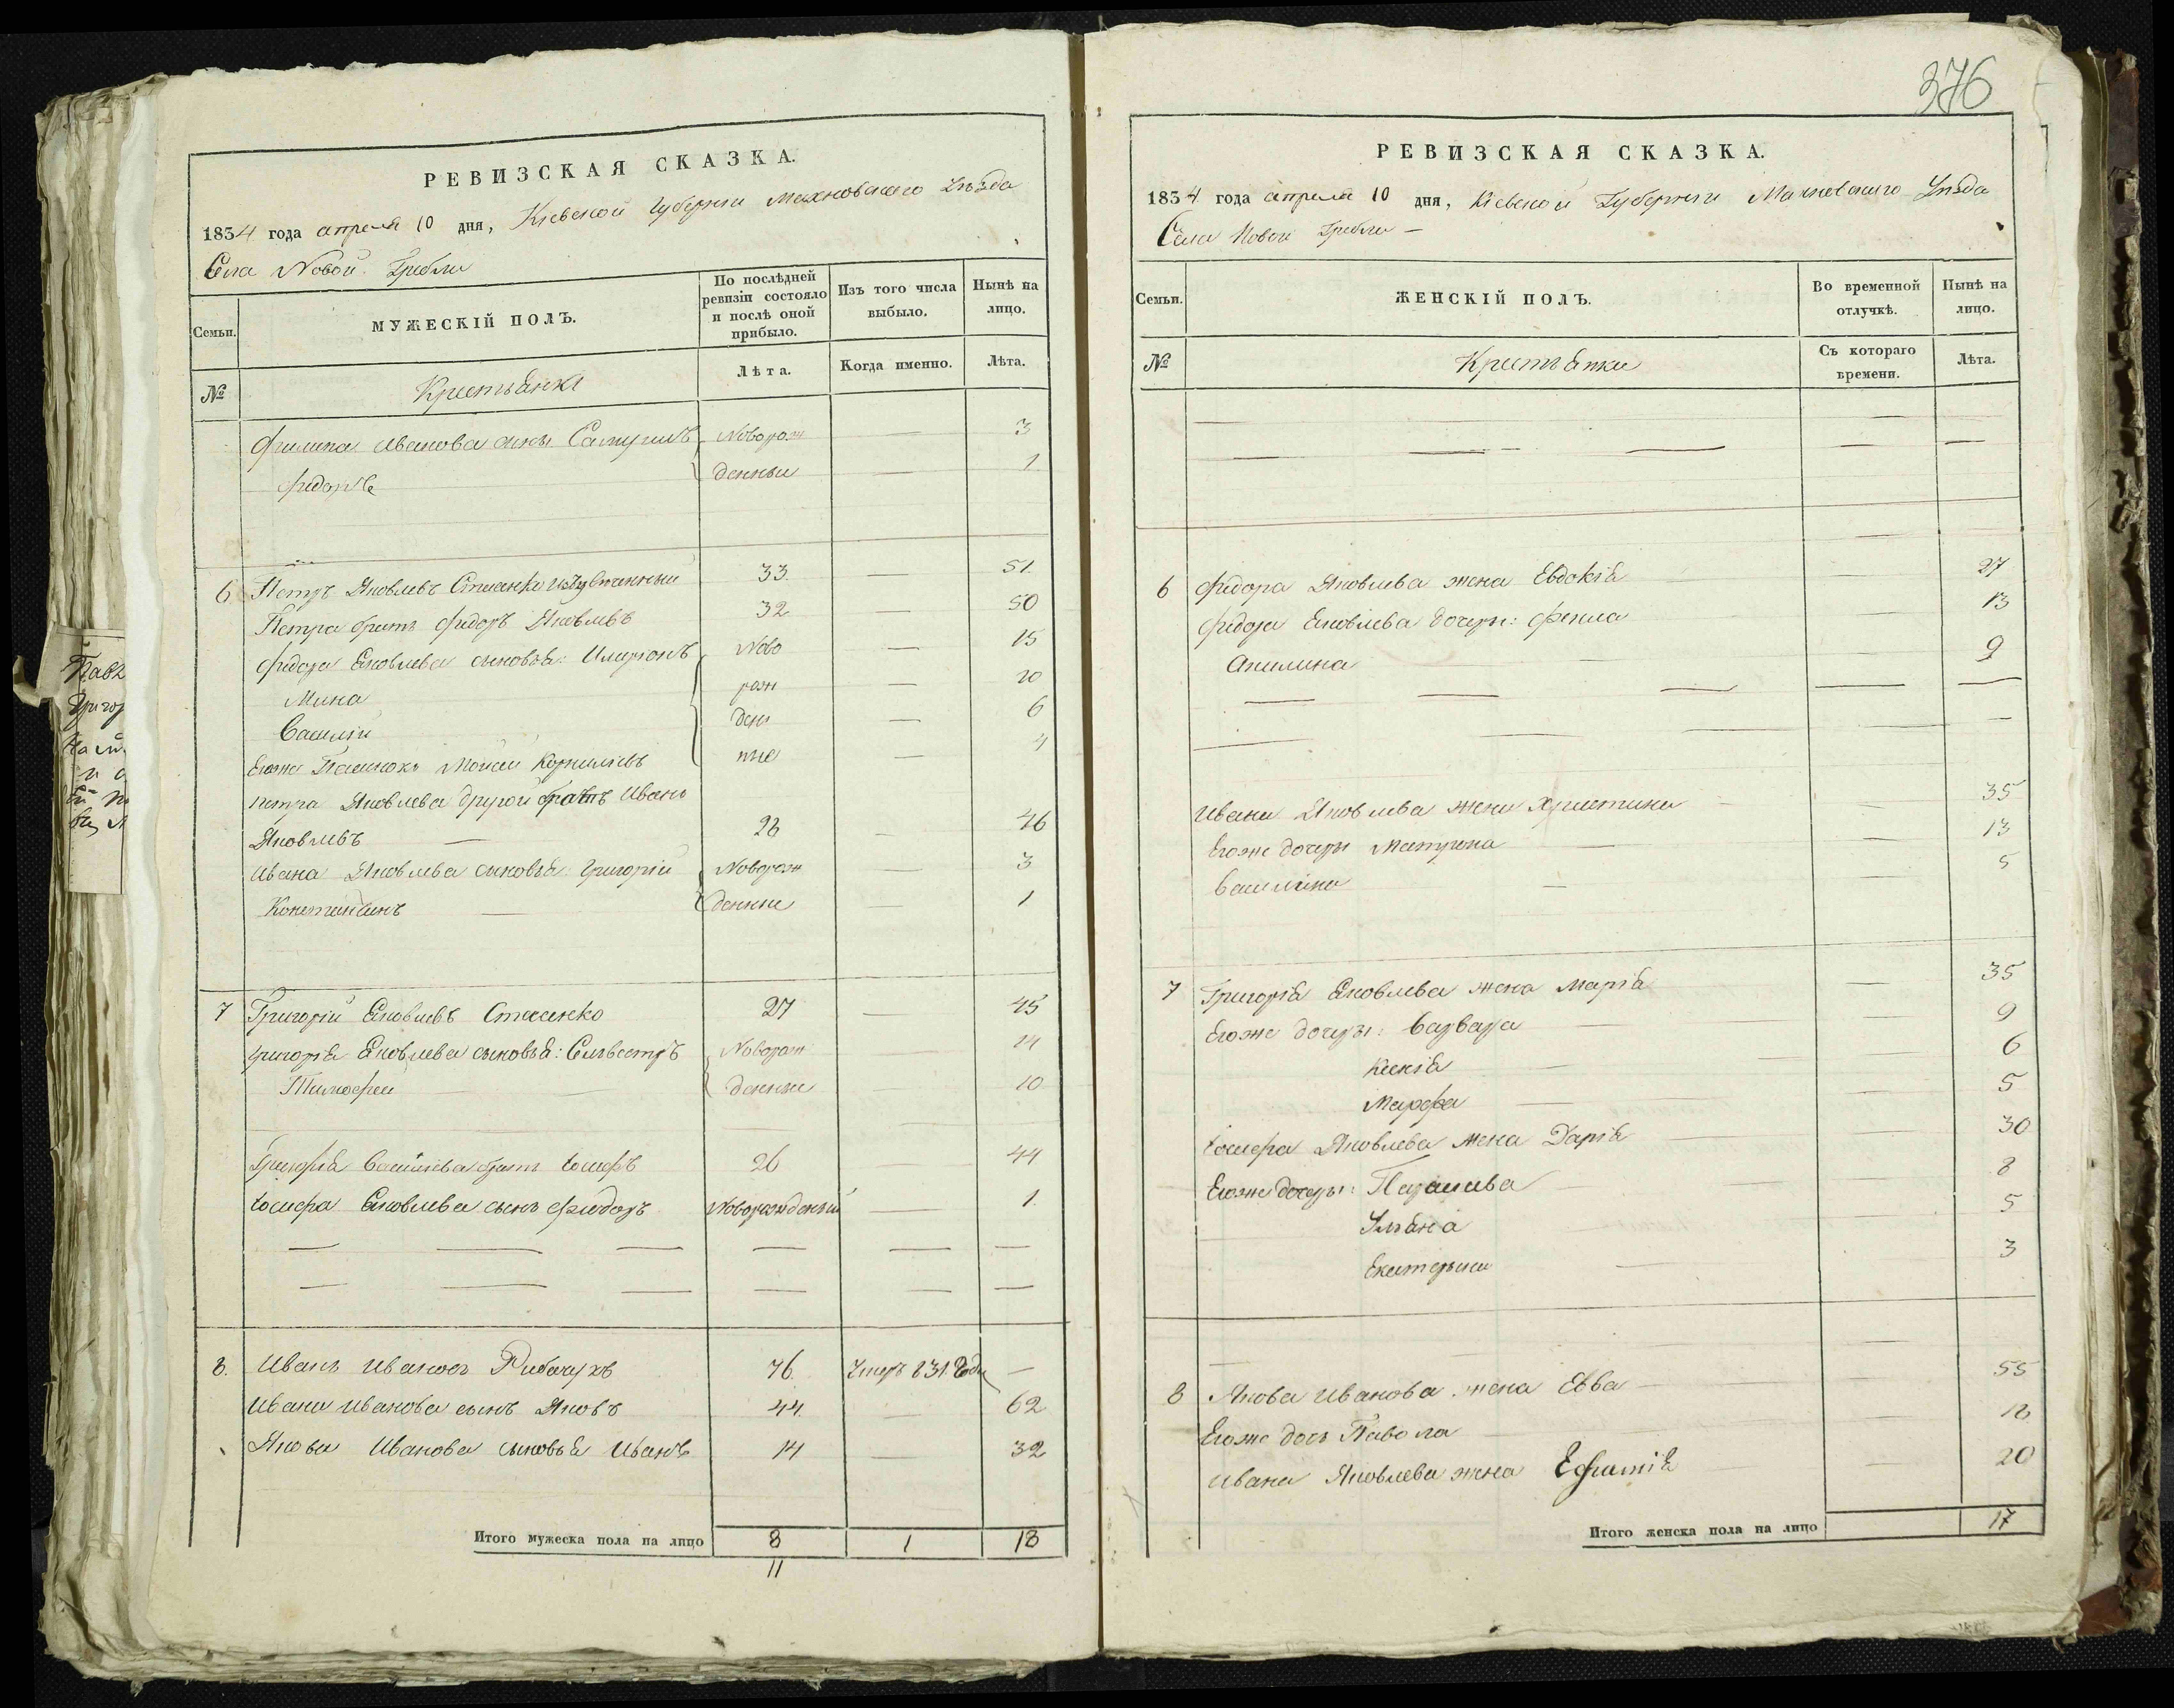 376
РЕВИЗСКАЯ СКАЗКА.
1834 года апреля 10 дня, Кіевской Губерніи Махновскаго Уѣзда
Села Новой Гребли
Семьи.
МУЖЕСКІЙ ПОЛЪ.
По послѣдней ревизіи состояло и послѣ оной прибыло.
Изъ того числа выбыло.
Нынѣ на лицо.
№
Крестьяне
Лѣта.
Когда именно.
Лѣта.
Филипа Иванова сынъ Самуилъ Новорож — 3
Федоръ денныи — 1
6 Петръ Яковлевъ 33 — 51
Петра братъ Федоръ Яковлевъ 32 — 50
Федора Яковлева сыновья: Иларіонъ Ново — 15
Мина рож — 10
Василій ден — 6
Егоже Моисей ные — 4
Петра Яковлева другой братъ Иванъ
Яковлевъ — 28 — 46
Ивана Яковлева сыновья Григорій Новорож — 3
Константинъ — денные — 1
7 Григорій Яковлевъ Стасенко 27 — 45
Григорія Яковлева сыновья: Сильвестръ Новорож — 14
Тимофей — денные — 10
Григорія братъ Іосифъ 26 — 44
Іосифа Яковлева сынъ Фіодоръ Новорожденный — 1
8. Иванъ Ивановъ 76. Умеръ 831 Года —
Ивана Иванова сынъ Яковъ 44 — 62
Якова Иванова сыновья Иванъ 14 — 32
Итого мужеска пола на лицо 8 1 18
11
РЕВИЗСКАЯ СКАЗКА.
1834 года апреля 10 дня, Кіевской Губерніи Махновскаго Уѣзда
Села Новой Гребли —
Семьи.
ЖЕНСКІЙ ПОЛЪ.
Во временной отлучкѣ.
Нынѣ на лицо.
№
Крестьянки
Съ котораго времени.
Лѣта.
6 Федора Яковлева жена Евдокія — 27
Федора Яковлева дочери: Фенна — 13
Акилина — 9
Ивана Яковлева жена Христина — 35
Егоже дочери Матрона — 13
Василина — 5
7 Григорія Яковлева жена Марія — 35
Егоже дочери: Варвара — 9
Ксенія — 6
Марфа — 5
Іосифа Яковлева жена Дарія — 30
Егоже дочери: 8
Ульяна 5
Екатерина — 3
8 Якова Иванова жена Евва — 55
Егоже дочь
Ивана Яковлева жена — 20
Итого женска пола на лицо 17